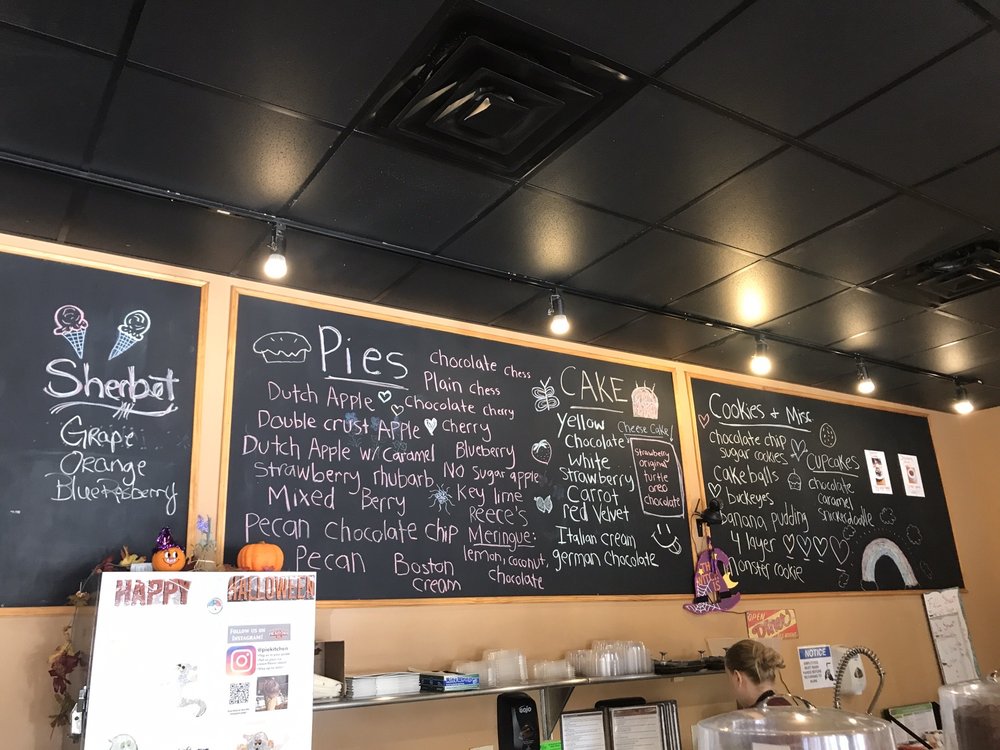 Sherbet
Grape
Orange
BlueRaspberry
Pies
Dutch Apple
Double crust Apple
Dutch Apple w/ Caramel
Strawberry rhubarb
Mixed Berry
Pecan chocolate chip
Pecan
Boston cream
chocolate chess
Plain chess
chocolate cherry
cherry
Blueberry
NO sugar apple
Key lime
Reece's
Meringue:
lemon, coconut,
chocolate
CAKE
Yellow
Chocolate
white
strawberry
Carrot
red velvet
Italian cream
german chocolate
Cheese Cake!
Strawberry
original
turtle
oreo
chocolate
Cookies + Misc.
chocolate chip
sugar cookies
cake balls
buckeyes
banana pudding
4 layer
monster cookie
CUPCAKES
chocolate
caramel
snickerdoodle
HAPPY HALLOWEEN
FOLLOW US ON
INSTAGRAM!
@piekitchen
OPEN
Diner
NOTICE
GOJO